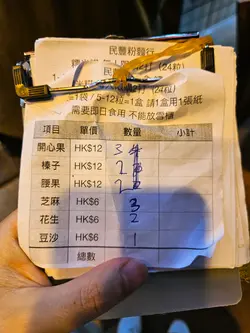 民豐粉麵行
(24粒)
2打 (24粒)
1袋 / 5-12粒=1盒 請1盒用1張紙
需要即日食用 不能放雪櫃
項目 單價 數量 小計
開心果 HK$12 3
榛子 HK$12 2
腰果 HK$12 2
芝麻 HK$6 3
花生 HK$6 2
豆沙 HK$6 1
總數